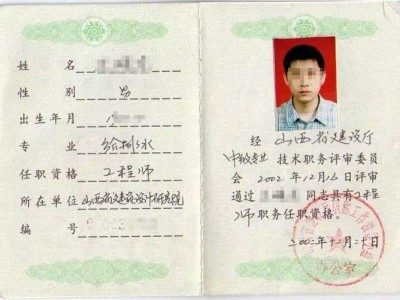 姓 名
性 别 男
出生年月
专 业 给排水
任职资格 工程师
所在单位 山西省建筑设计研究院
编 号
经 山西省建设厅
中级专业 技术职务评审委员
会 2002 年 12 月 16 日评审
通过 同志具有工程
师职务任职资格。
2002年12月20日
办公室